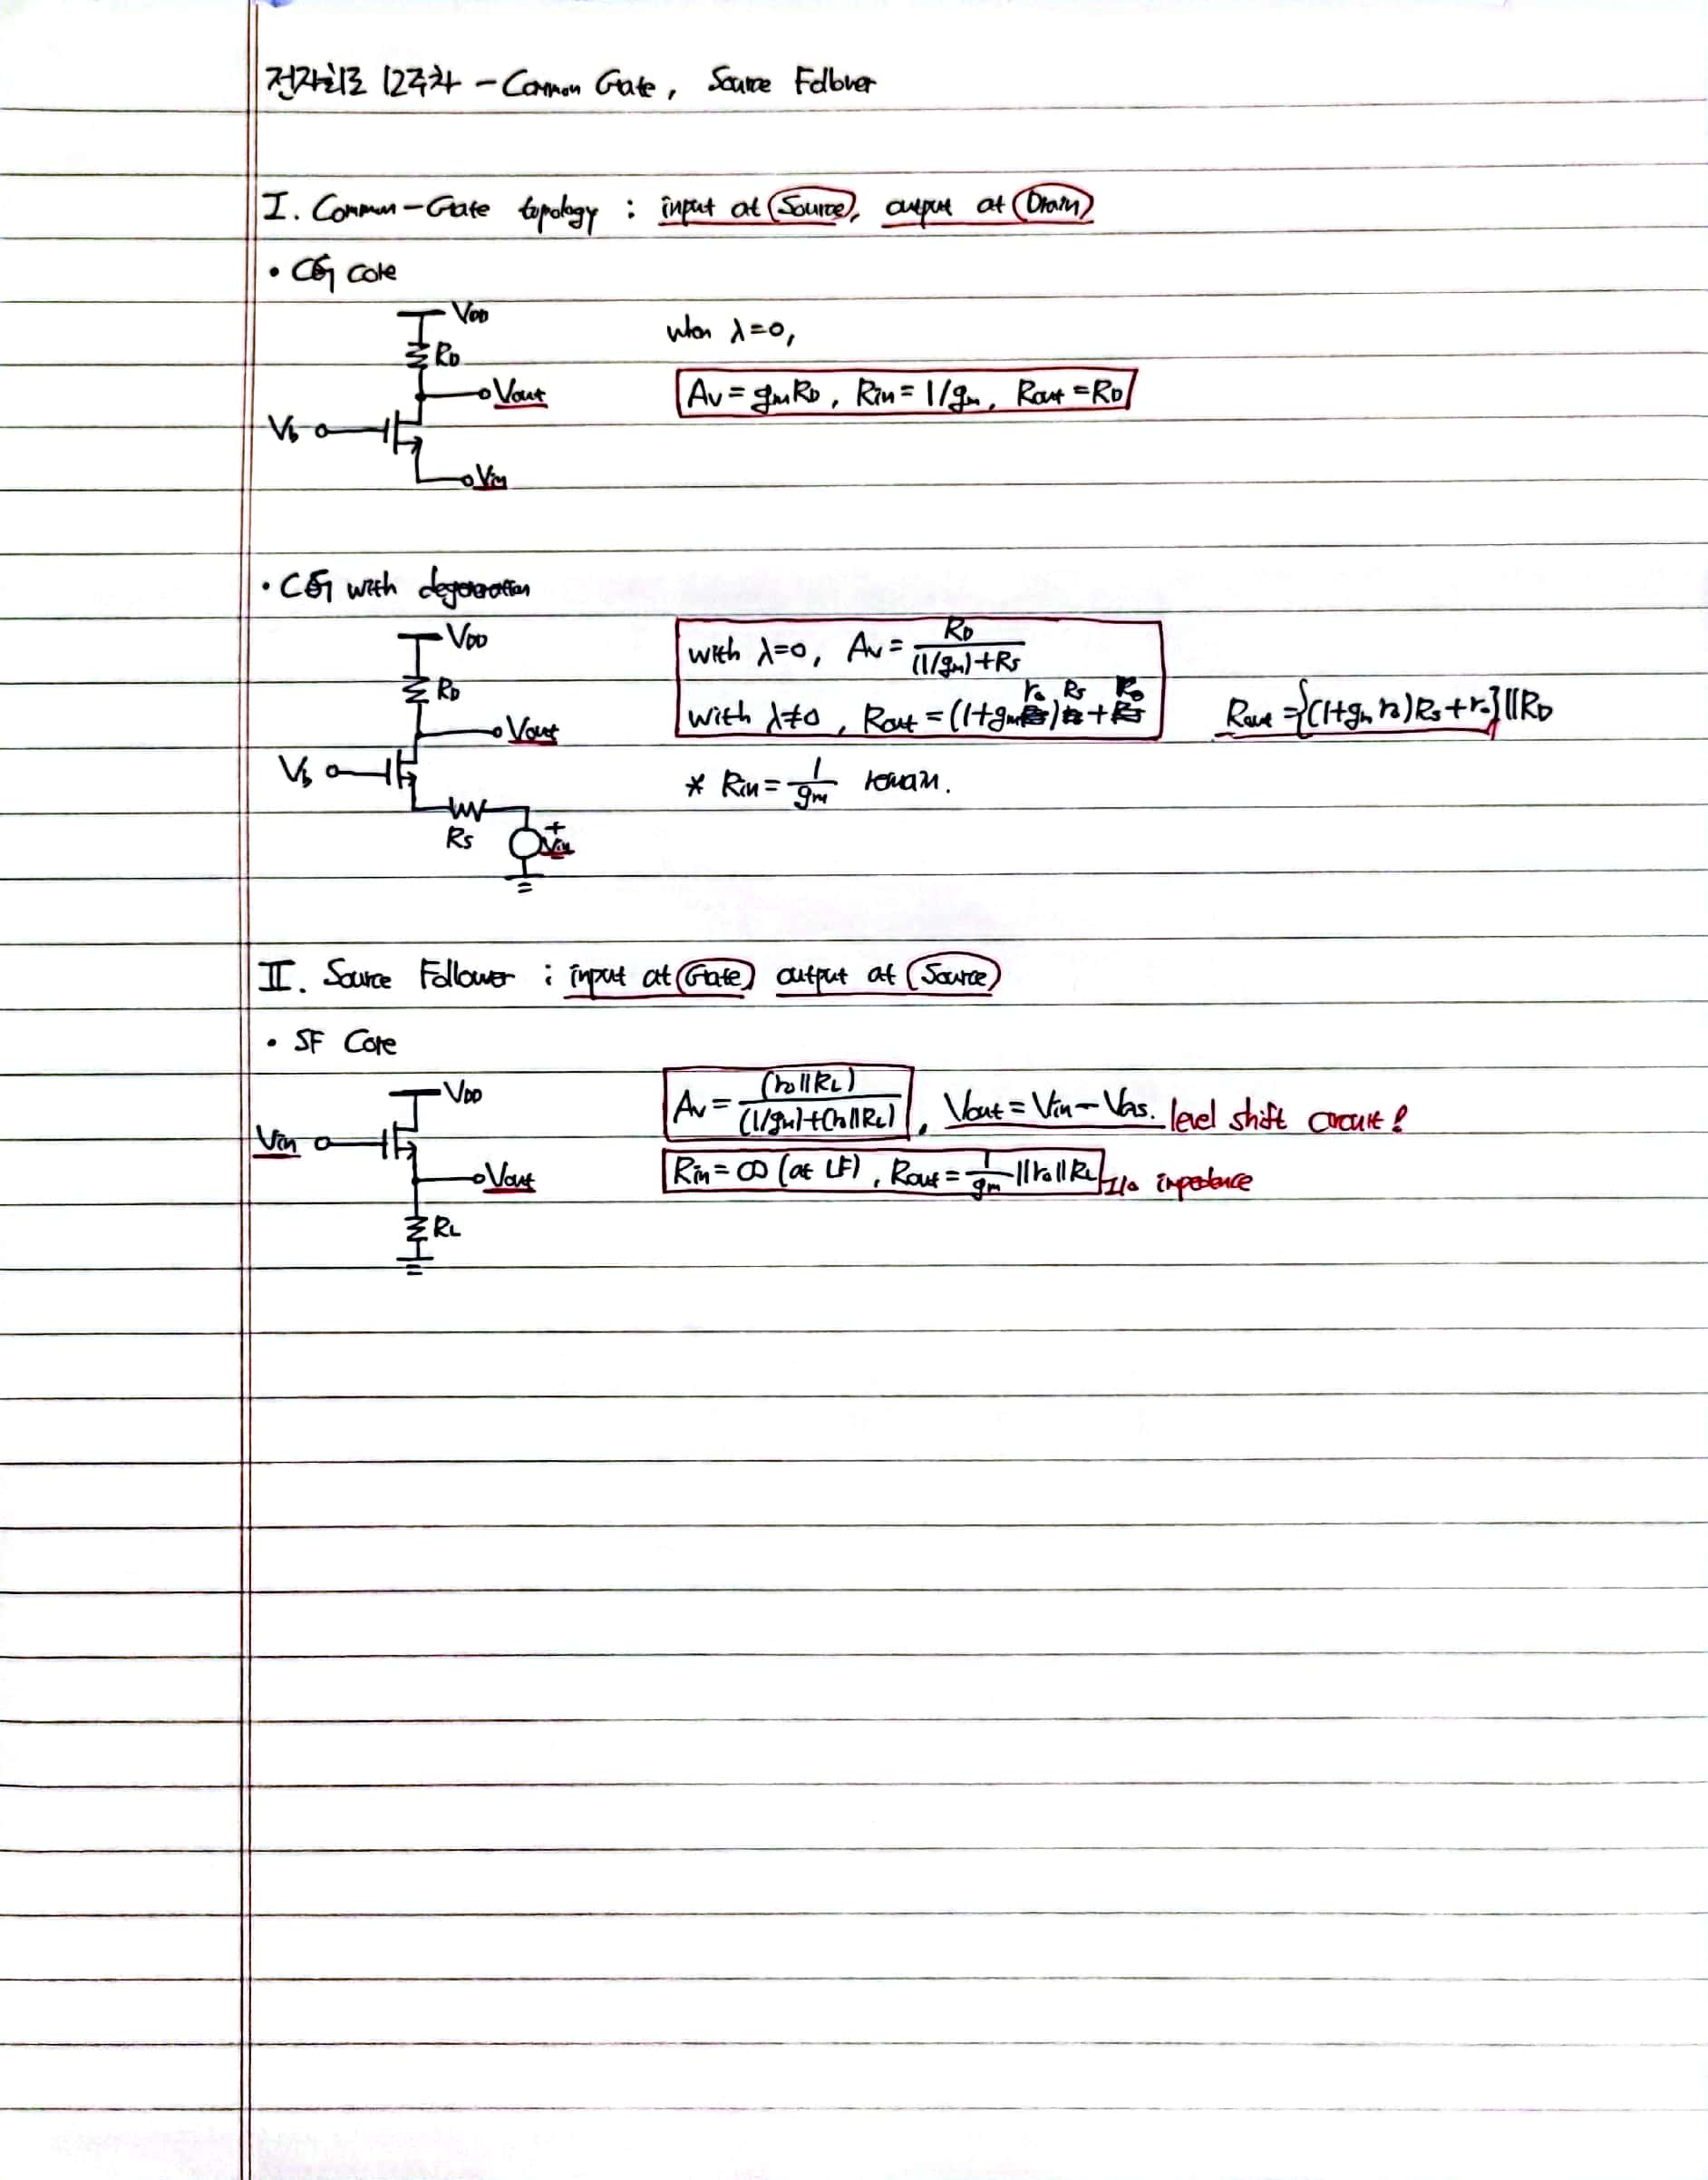 전자회로 12주차 - Common Gate, Source Follower
I. Common-Gate topology : input at Source, output at Drain
• CG core
VDD
RD
Vout
Vb
Vin
when λ=0,
Av = gmRD, Rin = 1/gm, Rout = RD
• CG with degeneration
VDD
RD
Vout
Vb
RS
+
Vin
with λ=0, Av = RD / (1/gm)+RS
with λ≠0, Rout = (1+gm ro) RS +
Rout = {(1+gm ro)RS + ro} || RD
* Rin = 1/gm remain.
II. Source Follower : input at Gate output at Source
• SF Core
VDD
Vin
Vout
RL
Av = (ro||RL) / (1/gm)+(ro||RL), Vout = Vin - VGS. level shift circuit!
Rin = ∞ (at LF), Rout = 1/gm || ro || RL I/o impedence